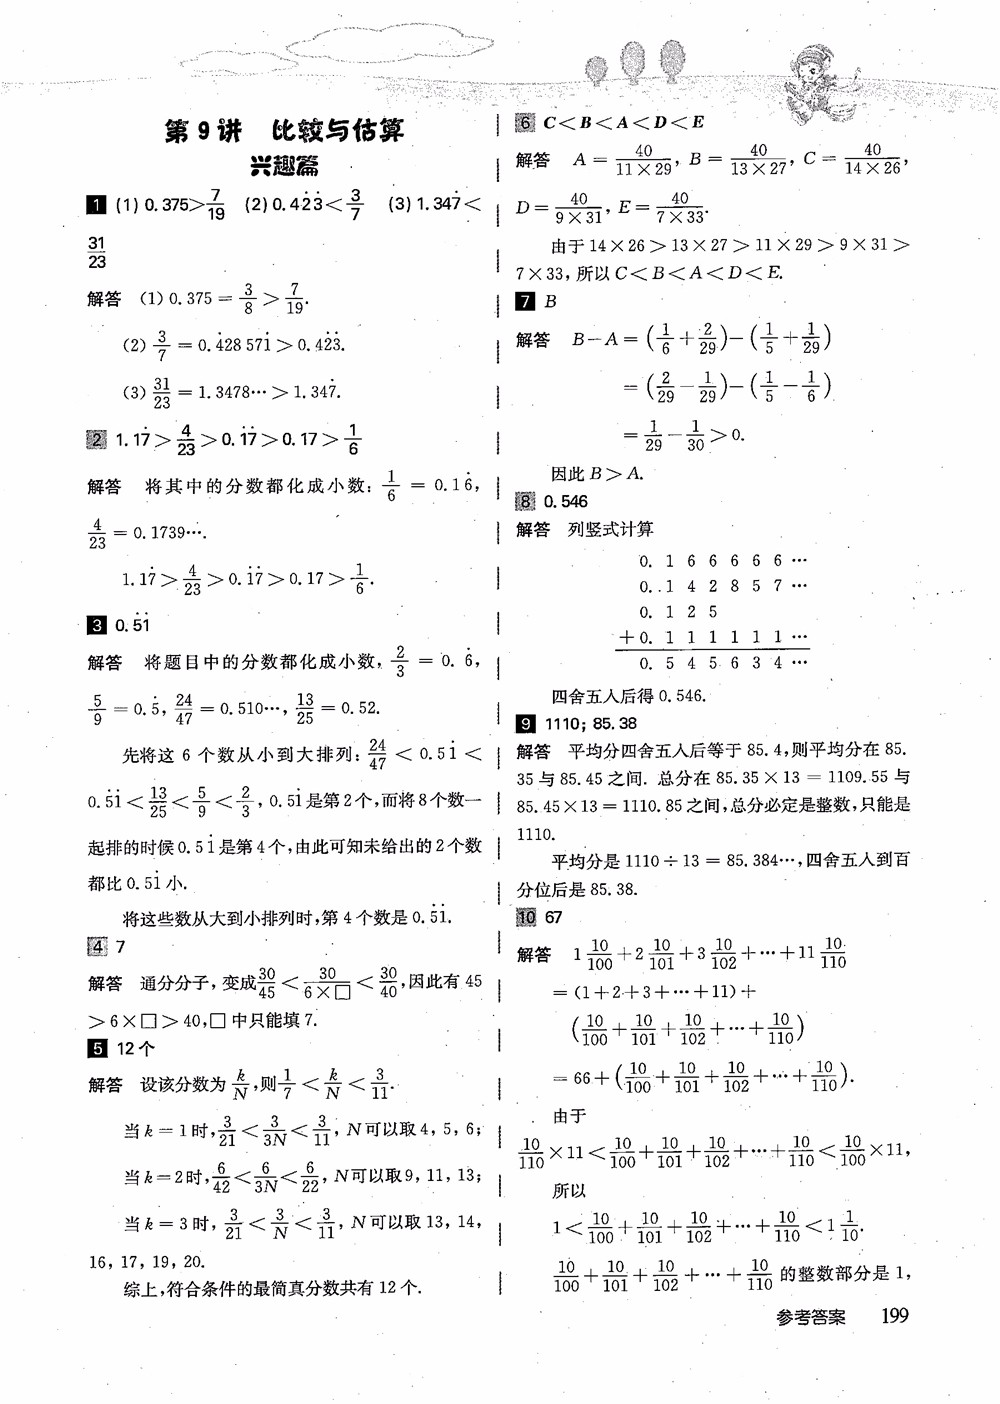 第9讲 比较与估算
兴趣篇
1 (1) 0.375>7/19 (2) 0.42̇3̇<3/7 (3) 1.347̇<
31/23
解答 (1) 0.375 = 3/8 > 7/19.
(2) 3/7 = 0.4̇28 571̇ > 0.42̇3̇.
(3) 31/23 = 1.3478… > 1.347̇.
2 1.17̇ > 4/23 > 0.1̇7̇ > 0.17 > 1/6
解答 将其中的分数都化成小数: 1/6 = 0.16̇,
4/23 = 0.1739….
1.17̇ > 4/23 > 0.1̇7̇ > 0.17 > 1/6.
3 0.5̇1̇
解答 将题目中的分数都化成小数, 2/3 = 0.6̇,
5/9 = 0.5̇, 24/47 = 0.510…, 13/25 = 0.52.
先将这 6 个数从小到大排列: 24/47 < 0.51̇ <
0.5̇1̇ < 13/25 < 5/9 < 2/3, 0.51̇是第2个,而将8个数一
起排的时候0.51̇是第4个,由此可知未给出的2个数
都比0.51̇小.
将这些数从大到小排列时,第4个数是0.5̇1̇.
4 7
解答 通分分子,变成30/45 < 30/(6×□) < 30/40,因此有45
>6×□>40,□中只能填7.
5 12个
解答 设该分数为k/N,则1/7 < k/N < 3/11.
当k=1时,3/21 < 3/3N < 3/11, N可以取4, 5, 6;
当k=2时,6/42 < 6/3N < 6/22, N可以取9, 11, 13;
当k=3时,3/21 < 3/N < 3/11, N可以取13, 14,
16, 17, 19, 20.
综上,符合条件的最简真分数共有12个.
6 C<B<A<D<E
解答 A = 40/(11×29), B = 40/(13×27), C = 40/(14×26),
D = 40/(9×31), E = 40/(7×33).
由于14×26>13×27>11×29>9×31>
7×33,所以C<B<A<D<E.
7 B
解答 B−A = (1/6 + 2/29) − (1/5 + 1/29)
= (2/29 − 1/29) − (1/5 − 1/6)
= 1/29 − 1/30 > 0.
因此B>A.
8 0.546
解答 列竖式计算
0. 1 6 6 6 6 6 …
0. 1 4 2 8 5 7 …
0. 1 2 5
+0. 1 1 1 1 1 1 …
0. 5 4 5 6 3 4 …
四舍五入后得0.546.
9 1110; 85.38
解答 平均分四舍五入后等于85.4,则平均分在85.
35与85.45之间. 总分在85.35×13 = 1109.55与
85.45×13=1110.85之间,总分必定是整数,只能是
1110.
平均分是1110÷13 = 85.384…,四舍五入到百
分位后是85.38.
10 67
解答 1 10/100 + 2 10/101 + 3 10/102 + … + 11 10/110
= (1+2+3+…+11)+
(10/100 + 10/101 + 10/102 + … + 10/110)
= 66+(10/100 + 10/101 + 10/102 + … + 10/110).
由于
10/110×11 < 10/100 + 10/101 + 10/102 + … + 10/110 < 10/100×11,
所以
1 < 10/100 + 10/101 + 10/102 + … + 10/110 < 1 1/10.
10/100 + 10/101 + 10/102 + … + 10/110 的整数部分是1,
参考答案 199